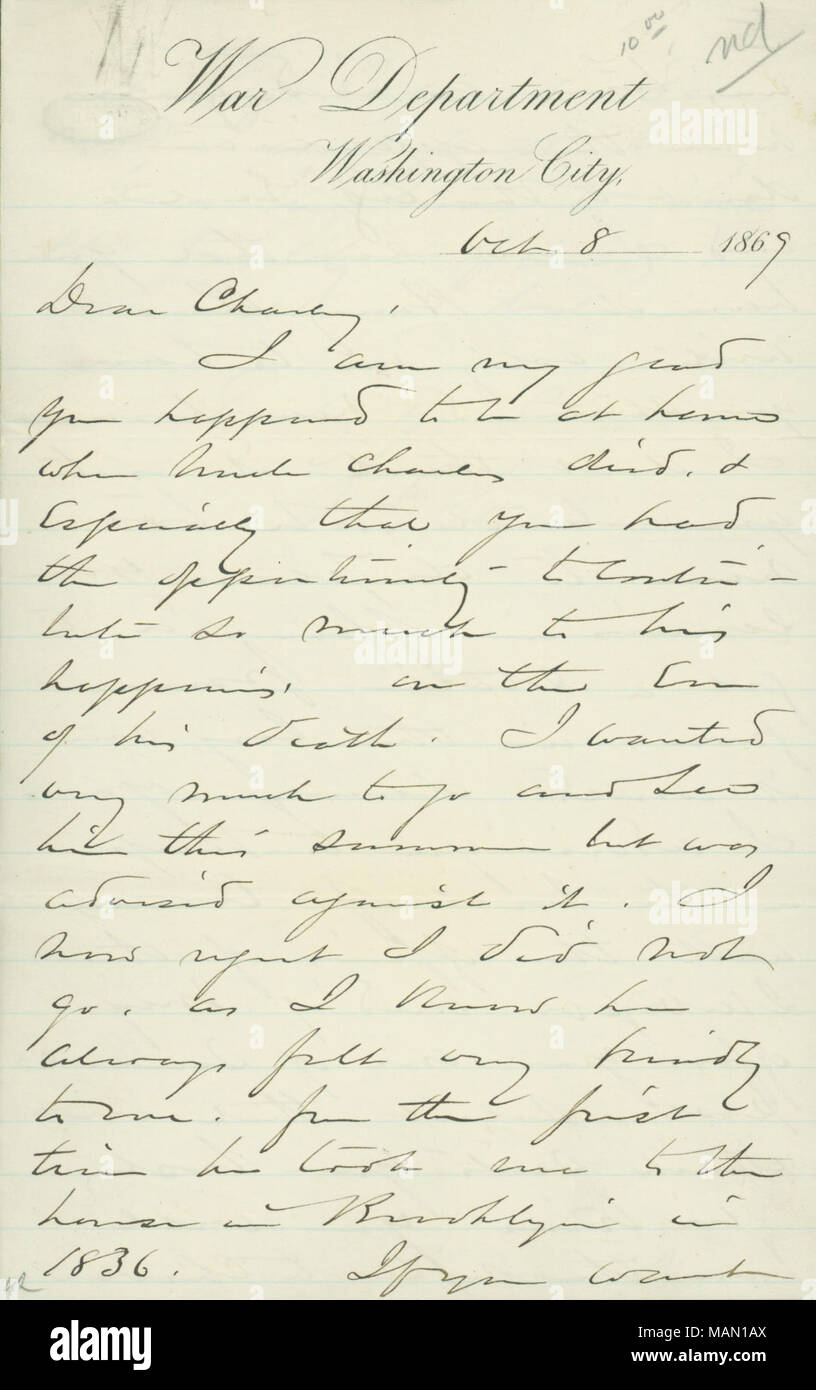 10 00
nd
War Department
Washington City,
Oct 8 1869
Dear Charley,
I am very glad
you happened to be at home
when Uncle Charles died, &
Especially that you had
the opportunity to contri-
bute so much to his
happiness, on the Eve
of his death. I wanted
very much to go and see
him this summer but was
advised against it. I
now regret I did not
go, as I know he
always felt very kindly
to me. from the first
time he took me to the
house in Brooklyn in
1836. If you want
42
alamy
MAN1AX
www.alamy.com